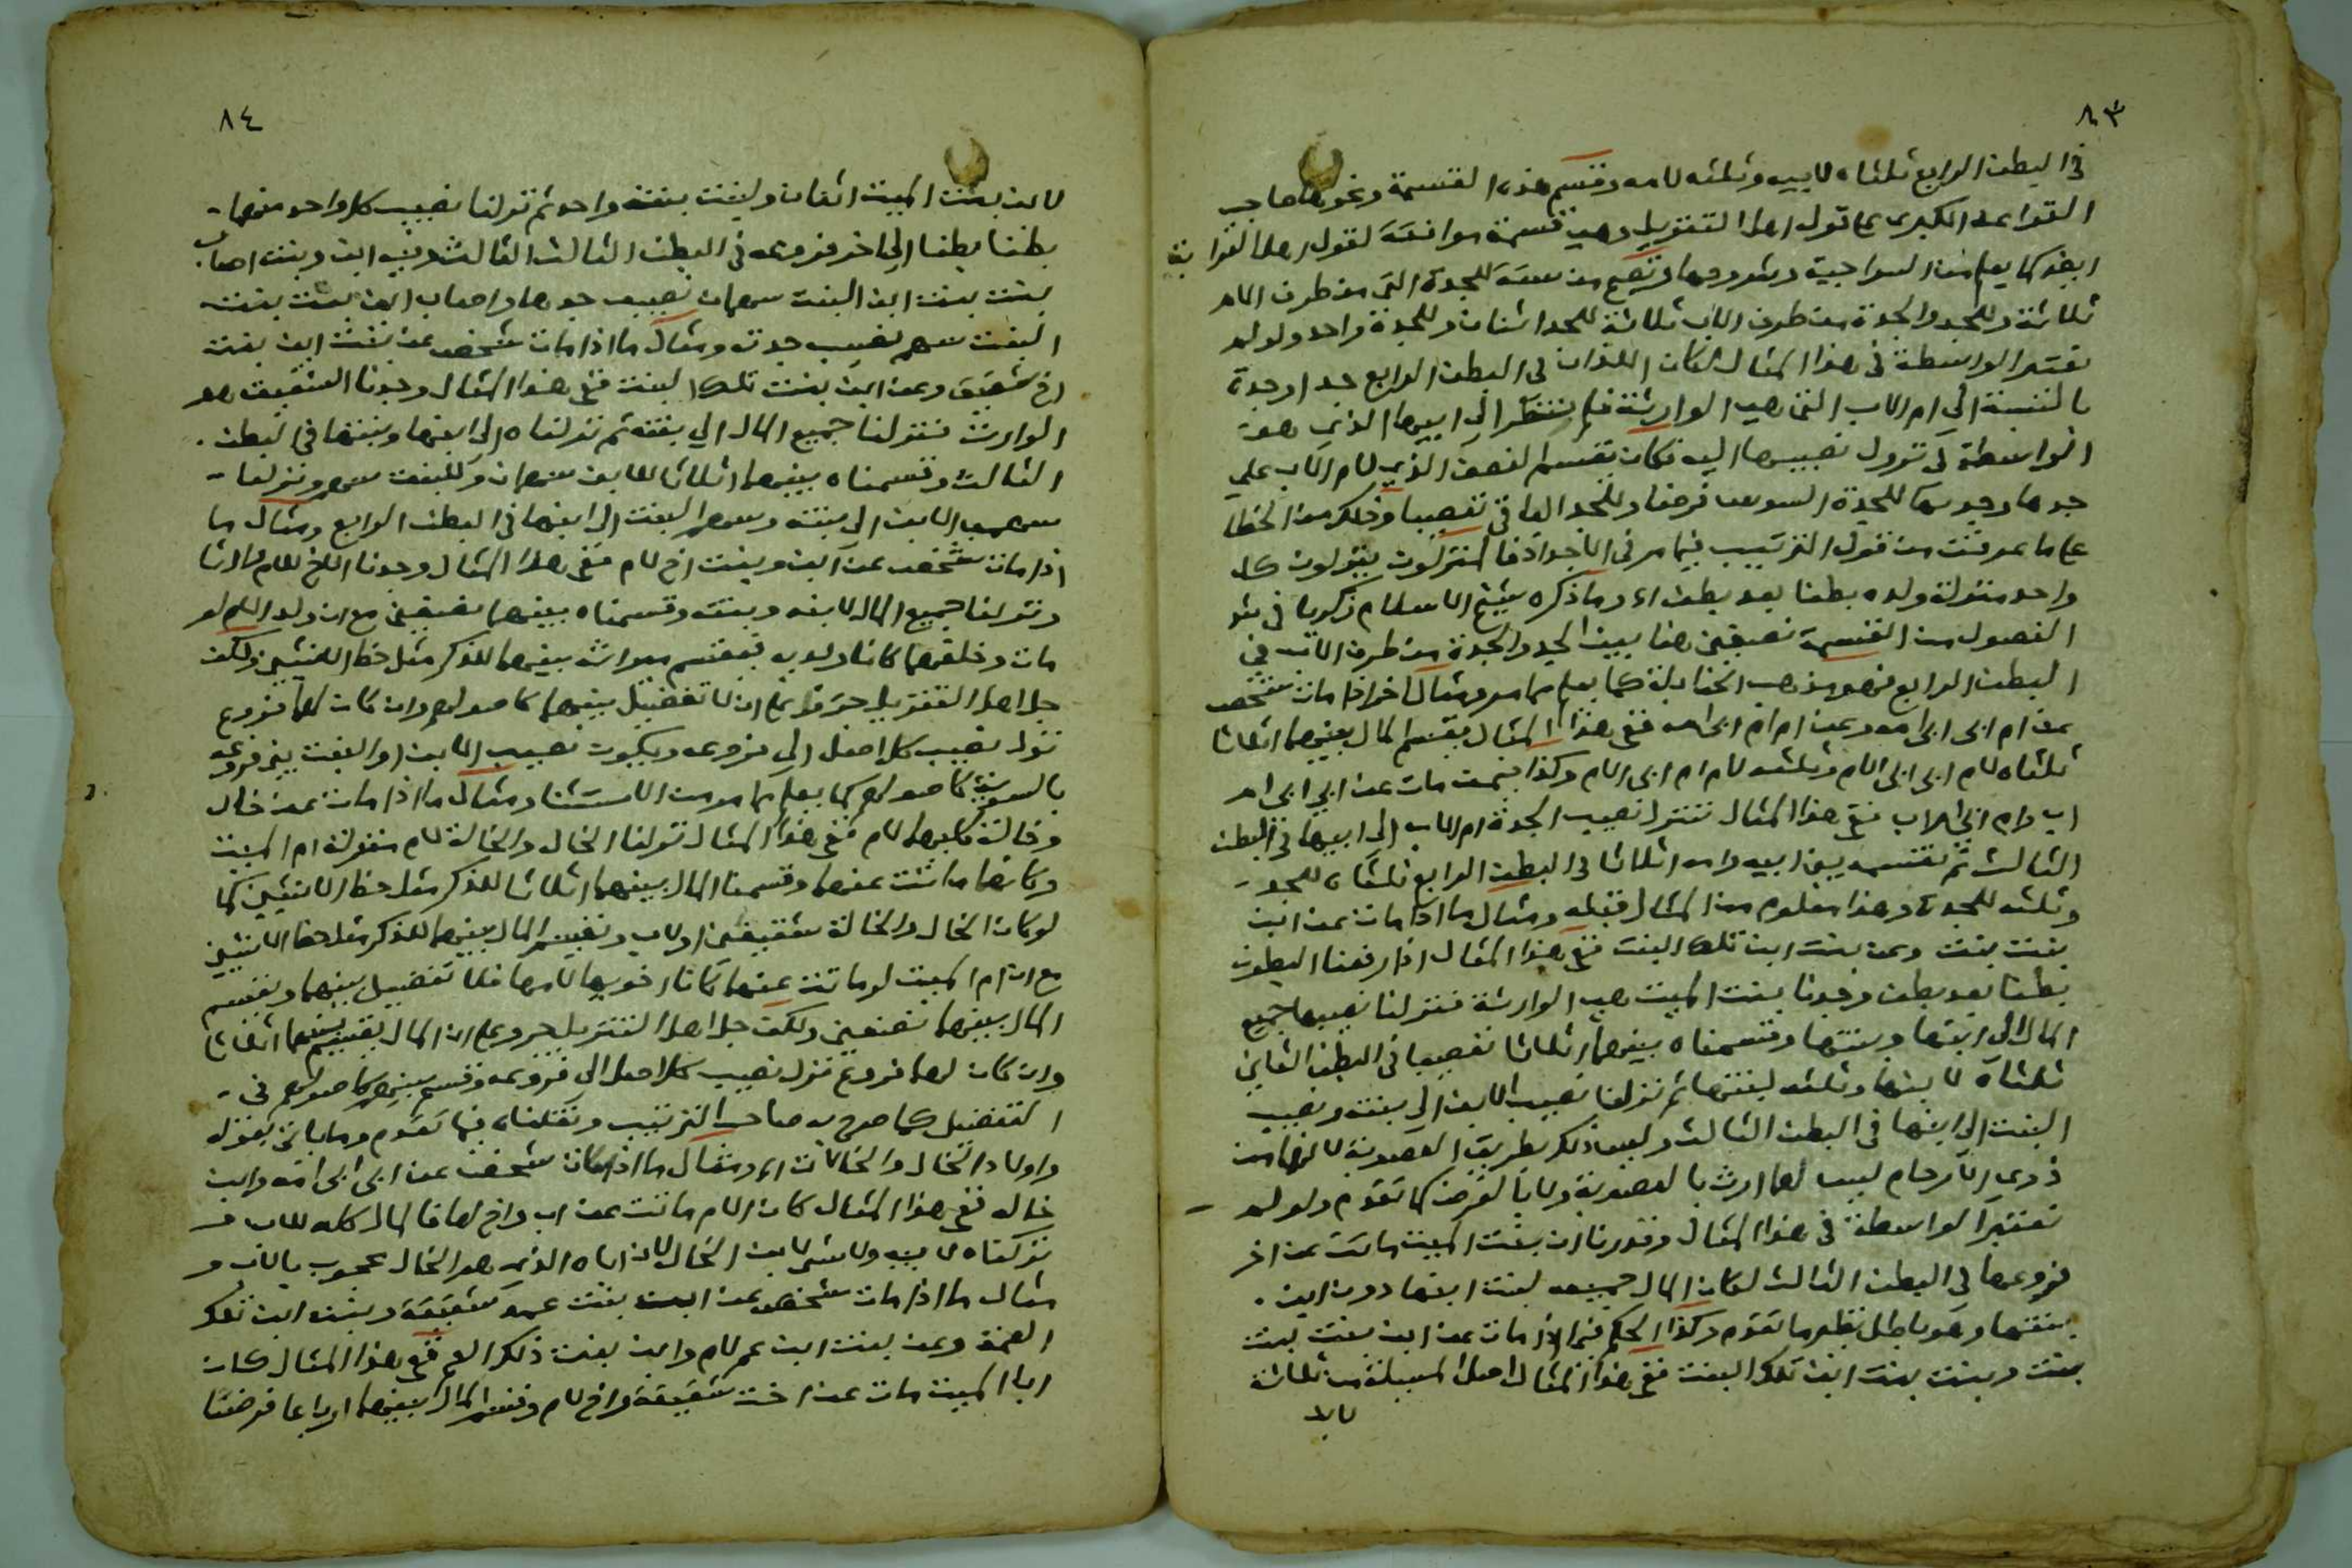 ٨٣
في البطن الرابع ثلثاه لابيه وثلثه لامه وقسم هذه القسمة ونحوها صاحب
القواعد الكبرى على قول اهل التنزيل وهي قسمة موافقة لقول اهل القرابة
ايضا كما يعلم من السراجية وشروحها وتصح من ستة للجدة التي من طرف الام
ثلاثة وللجد والجدة من طرف الاب ثلاثة للجد اثنان وللجدة واحد ولو لم
تعتبر الواسطة في هذا المثال لكان اللذان في البطن الرابع جد او جدة
بالنسبة الى ام الاب التي هي الوارثة فلم ينتظر الى ابيها الذي هو
الواسطة في نزول نصيبها اليه فكان يقسم النصف الذي لام الاب على
جدها وجدتها للجدة السدس فرضا وللجد الباقي تعصيبا وذلك من الخطا
على ما عرفت من قول الترتيب فيما مر في الاجداد فالمنزلون ينزلون كل
واحد منزلة ولده بطنا بعد بطن اه وما ذكره شيخ الاسلام زكريا في شر
الفصول من القسمة نصفين هنا بين الجد والجدة من طرف الاب في
البطن الرابع فهو مذهب الحنابلة كما يعلم مما مر ومثال اخر اذا مات شخص
عن ام ابى ابى امه وعن ام ام ابى امه ففى هذا المثال يقسم المال بينهما اثلاثا
ثلثاه لام ابى ابى الام وثلثه لام ام ابى الام وكذا فيمن مات عن ابى ابى ام
اب وام ابى ام اب ففى هذا المثال ننزل نصيب الجدة ام الاب الى ابيها في البطن
الثالث ثم نقسمه بين ابيه وامه اثلاثا في البطن الرابع ثلثاه للجد
وثلثه للجدة وهذا معلوم من المثال قبله ومثال ما اذا مات عن ابن
بنت بنت وعن بنت ابن تلك البنت ففى هذا المثال اذا رفعنا البطون
بطنا بعد بطن وجدنا بنت الميت هي الوارثة فنزلنا نصيبها جميع
المال الى ابنها وبنتها وقسمناه بينهما اثلاثا تعصيبا في البطن الثاني
ثلثاه لابنها وثلثه لبنتها ثم نزلنا نصيب الابن الى بنته ونصيب
البنت الى ابنها في البطن الثالث وليس ذلك بطريق العصوبة لانهما من
ذوى الارحام ليس لهما ارث بالعصوبة ولا بالفرض كما تقدم ولو لم
نعتبر الواسطة في هذا المثال وقدرنا ان بنت الميت ماتت عن اخر
فروعها في البطن الثالث لكان المال جميعه لبنت ابنها دون ابن
بنتها وهو باطل نظير ما تقدم وكذا الحكم فيما اذا مات عن ابن بنت بنت
بنت وبنت بنت ابن تلك البنت ففى هذا المثال اصل المسئلة من ثلاثة
لابن
٨٤
لابن بنت الميت اثنان ولبنت بنته واحد ثم نزلنا نصيب كل واحد منهما
بطنا بطنا الى اخر فروعه في البطن الثالث وبنت اصاب
بنت بنت ابن البنت سهمان نصيب جدها واصاب ابن بنت بنت
البنت سهم نصيب جدته ومثال ما اذا مات شخص عن بنت ابن بنت
اخ شقيق وعن ابن بنت تلك البنت ففى هذا المثال وجدنا الشقيق هو
الوارث فنزلنا جميع المال الى بنته ثم نزلناه الى ابنها وبنتها في البطن
الثالث وقسمناه بينهما اثلاثا للابن سهمان وللبنت سهم ونزلنا
سهمى الابن الى بنته وسهم البنت الى ابنها في البطن الرابع ومثال ما
اذا مات شخص عن ابن وبنت اخ لام ففى هذا المثال وجدنا الاخ للام وارثا
ونزلنا جميع المال لابنه وبنته وقسمناه بينهما نصفين مع ان ولد الام لو
مات وخلفهما كانا ولديه فيقسم ميراثه بينهما للذكر مثل حظ الانثيين ولكن
جل اهل التنزيل جروا على ان لا تفضيل بينهما كاصولهم وان كان لهما فروع
نزل نصيب كل اصل الى فروعه ويكون نصيب الابن او البنت بين فروعه
بالسوية كاصولهم كما يعلم مما مر من الاستثنا ومثال ما اذا مات عن خال
وخالة كليهما لام ففى هذا المثال نزلنا الخال والخالة للام منزلة ام الميت
وكانها ماتت عنهما وقسمنا المال بينهما اثلاثا للذكر مثل حظ الانثيين كما
لو كان الخال والخالة شقيقين او لاب ونقسم المال بينهما للذكر مثل حظ الانثيين
مع ان ام الميت لو ماتت عنهما كانا اخويها لامها فلا تفضيل بينهما ونقسم
المال بينهما نصفين ولكن جل اهل التنزيل جروا على ان المال يقسم بينهما اثلاثا
وان كان لهما فروع نزل نصيب كل اصل الى فروعه وقسم بينهم كاصولهم في
التفضيل كما صرح به صاحب الترتيب ونقلناه فيما تقدم وما ياتى بقوله
واولاد الخال والخالات اه ومثال ما اذا كان شخص عن ابى ابى امه وابن
خاله ففى هذا المثال كان الام ماتت عن اب واخ لها فالمال كله للاب و
نزلناه لابيه ولا شى لابن الخال لان اباه الذى هو الخال محجوب بالاب و
مثال ما اذا مات شخص عن ابن بنت عمة شقيقة وبنت ابن تلك
العمة وعن بنت ابن عم لام وابن بنت ذلك العم ففى هذا المثال كان
ابا الميت مات عن اخت شقيقة واخ لام وقسم المال بينهما ارباعا فرضا